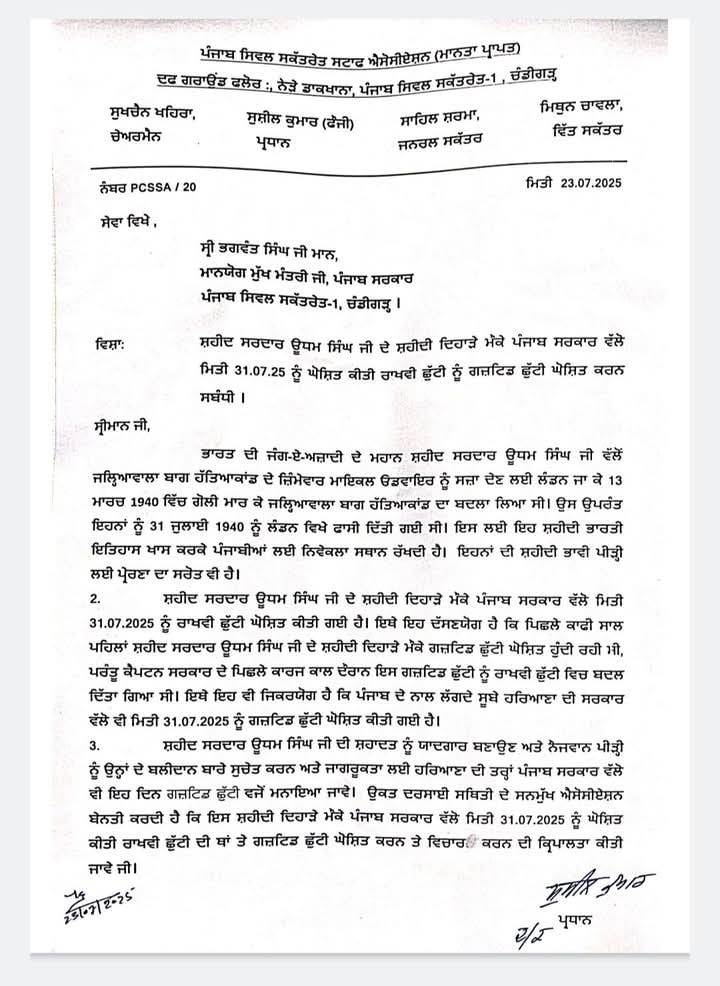 ਪੰਜਾਬ ਸਿਵਲ ਸਕੱਤਰੇਤ ਸਟਾਫ ਐਸੋਸੀਏਸ਼ਨ (ਮਾਨਤਾ ਪ੍ਰਾਪਤ)
ਦਫ ਗਰਾਊਂਡ ਫਲੋਰ :, ਨੇੜੇ ਡਾਕਖਾਨਾ, ਪੰਜਾਬ ਸਿਵਲ ਸਕੱਤਰੇਤ-1 , ਚੰਡੀਗੜ੍ਹ
ਸੁਖਚੈਨ ਖਹਿਰਾ, ਸੁਸ਼ੀਲ ਕੁਮਾਰ (ਫੌਜੀ) ਸਾਹਿਲ ਸ਼ਰਮਾ, ਮਿਥੁਨ ਚਾਵਲਾ,
ਚੇਅਰਮੈਨ ਪ੍ਰਧਾਨ ਜਨਰਲ ਸਕੱਤਰ ਵਿੱਤ ਸਕੱਤਰ
ਨੰਬਰ PCSSA / 20 ਮਿਤੀ 23.07.2025
ਸੇਵਾ ਵਿਖੇ ,
ਸ੍ਰੀ ਭਗਵੰਤ ਸਿੰਘ ਜੀ ਮਾਨ,
ਮਾਨਯੋਗ ਮੁੱਖ ਮੰਤਰੀ ਜੀ, ਪੰਜਾਬ ਸਰਕਾਰ
ਪੰਜਾਬ ਸਿਵਲ ਸਕੱਤਰੇਤ-1, ਚੰਡੀਗੜ੍ਹ ।
ਵਿਸ਼ਾ: ਸ਼ਹੀਦ ਸਰਦਾਰ ਊਧਮ ਸਿੰਘ ਜੀ ਦੇ ਸ਼ਹੀਦੀ ਦਿਹਾੜੇ ਮੌਕੇ ਪੰਜਾਬ ਸਰਕਾਰ ਵੱਲੋ
ਮਿਤੀ 31.07.25 ਨੂੰ ਘੋਸ਼ਿਤ ਕੀਤੀ ਰਾਖਵੀ ਛੁੱਟੀ ਨੂੰ ਗਜ਼ਟਿਡ ਛੁੱਟੀ ਘੋਸ਼ਿਤ ਕਰਨ
ਸਬੰਧੀ ।
ਸ੍ਰੀਮਾਨ ਜੀ,
ਭਾਰਤ ਦੀ ਜੰਗ-ਏ-ਅਜ਼ਾਦੀ ਦੇ ਮਹਾਨ ਸ਼ਹੀਦ ਸਰਦਾਰ ਊਧਮ ਸਿੰਘ ਜੀ ਵੱਲੋਂ
ਜਲ੍ਹਿਆਵਾਲਾ ਬਾਗ ਹੱਤਿਆਕਾਂਡ ਦੇ ਜ਼ਿੰਮੇਵਾਰ ਮਾਇਕਲ ੳਡਵਾਇਰ ਨੂੰ ਸਜ਼ਾ ਦੇਣ ਲਈ ਲੰਡਨ ਜਾ ਕੇ 13
ਮਾਰਚ 1940 ਵਿੱਚ ਗੋਲੀ ਮਾਰ ਕੇ ਜਲ੍ਹਿਆਵਾਲਾ ਬਾਗ ਹੱਤਿਆਕਾਂਡ ਦਾ ਬਦਲਾ ਲਿਆ ਸੀ। ਉਸ ਉਪਰੰਤ
ਇਹਨਾਂ ਨੂੰ 31 ਜੁਲਾਈ 1940 ਨੂੰ ਲੰਡਨ ਵਿਖੇ ਫਾਸੀ ਦਿੱਤੀ ਗਈ ਸੀ। ਇਸ ਲਈ ਇਹ ਸ਼ਹੀਦੀ ਭਾਰਤੀ
ਇਤਿਹਾਸ ਖਾਸ ਕਰਕੇ ਪੰਜਾਬੀਆਂ ਲਈ ਨਿਵੇਕਲਾ ਸਥਾਨ ਰੱਖਦੀ ਹੈ। ਇਹਨਾਂ ਦੀ ਸ਼ਹੀਦੀ ਭਾਵੀ ਪੀੜ੍ਹੀ
ਲਈ ਪ੍ਰੇਰਣਾ ਦਾ ਸਰੋਤ ਵੀ ਹੈ।
2. ਸ਼ਹੀਦ ਸਰਦਾਰ ਊਧਮ ਸਿੰਘ ਜੀ ਦੇ ਸ਼ਹੀਦੀ ਦਿਹਾੜੇ ਮੌਕੇ ਪੰਜਾਬ ਸਰਕਾਰ ਵੱਲੋ ਮਿਤੀ
31.07.2025 ਨੂੰ ਰਾਖਵੀ ਛੁੱਟੀ ਘੋਸ਼ਿਤ ਕੀਤੀ ਗਈ ਹੈ। ਇਥੇ ਇਹ ਦੱਸਣਯੋਗ ਹੈ ਕਿ ਪਿਛਲੇ ਕਾਫੀ ਸਾਲ
ਪਹਿਲਾਂ ਸ਼ਹੀਦ ਸਰਦਾਰ ਊਧਮ ਸਿੰਘ ਜੀ ਦੇ ਸ਼ਹੀਦੀ ਦਿਹਾੜੇ ਮੌਕੇ ਗਜ਼ਟਿਡ ਛੁੱਟੀ ਘੋਸ਼ਿਤ ਹੁੰਦੀ ਰਹੀ ਸੀ,
ਪਰੰਤੂ ਕੈਪਟਨ ਸਰਕਾਰ ਦੇ ਪਿਛਲੇ ਕਾਰਜ ਕਾਲ ਦੌਰਾਨ ਇਸ ਗਜ਼ਟਿਡ ਛੁੱਟੀ ਨੂੰ ਰਾਖਵੀ ਛੁੱਟੀ ਵਿਚ ਬਦਲ
ਦਿੱਤਾ ਗਿਆ ਸੀ। ਇਥੇ ਇਹ ਵੀ ਜਿਕਰਯੋਗ ਹੈ ਕਿ ਪੰਜਾਬ ਦੇ ਨਾਲ ਲੱਗਦੇ ਸੂਬੇ ਹਰਿਆਣਾ ਦੀ ਸਰਕਾਰ
ਵੱਲੋ ਵੀ ਮਿਤੀ 31.07.2025 ਨੂੰ ਗਜ਼ਟਿਡ ਛੁੱਟੀ ਘੋਸ਼ਿਤ ਕੀਤੀ ਗਈ ਹੈ।
3. ਸ਼ਹੀਦ ਸਰਦਾਰ ਊਧਮ ਸਿੰਘ ਜੀ ਦੀ ਸ਼ਹਾਦਤ ਨੂੰ ਯਾਦਗਾਰ ਬਣਾਉਣ ਅਤੇ ਨੌਜਵਾਨ ਪੀੜ੍ਹੀ
ਨੂੰ ਉਨ੍ਹਾਂ ਦੇ ਬਲੀਦਾਨ ਬਾਰੇ ਸੁਚੇਤ ਕਰਨ ਅਤੇ ਜਾਗਰੂਕਤਾ ਲਈ ਹਰਿਆਣਾ ਦੀ ਤਰ੍ਹਾਂ ਪੰਜਾਬ ਸਰਕਾਰ ਵੱਲੋ
ਵੀ ਇਹ ਦਿਨ ਗਜ਼ਟਿਡ ਛੁੱਟੀ ਵਜੋਂ ਮਨਾਇਆ ਜਾਵੇ। ਉਕਤ ਦਰਸਾਈ ਸਥਿਤੀ ਦੇ ਸਨਮੁੱਖ ਐਸੋਸੀਏਸ਼ਨ
ਬੇਨਤੀ ਕਰਦੀ ਹੈ ਕਿ ਇਸ ਸ਼ਹੀਦੀ ਦਿਹਾੜੇ ਮੌਕੇ ਪੰਜਾਬ ਸਰਕਾਰ ਵੱਲੋ ਮਿਤੀ 31.07.2025 ਨੂੰ ਘੋਸ਼ਿਤ
ਕੀਤੀ ਰਾਖਵੀ ਛੁੱਟੀ ਦੀ ਥਾਂ ਤੇ ਗਜ਼ਟਿਡ ਛੁੱਟੀ ਘੋਸ਼ਿਤ ਕਰਨ ਤੇ ਵਿਚਾਰ ਕਰਨ ਦੀ ਕ੍ਰਿਪਾਲਤਾ ਕੀਤੀ
ਜਾਵੇ ਜੀ।
23/07/2025 ਸੁਸੀਲ ਕੁਮਾਰ
ਪ੍ਰਧਾਨ